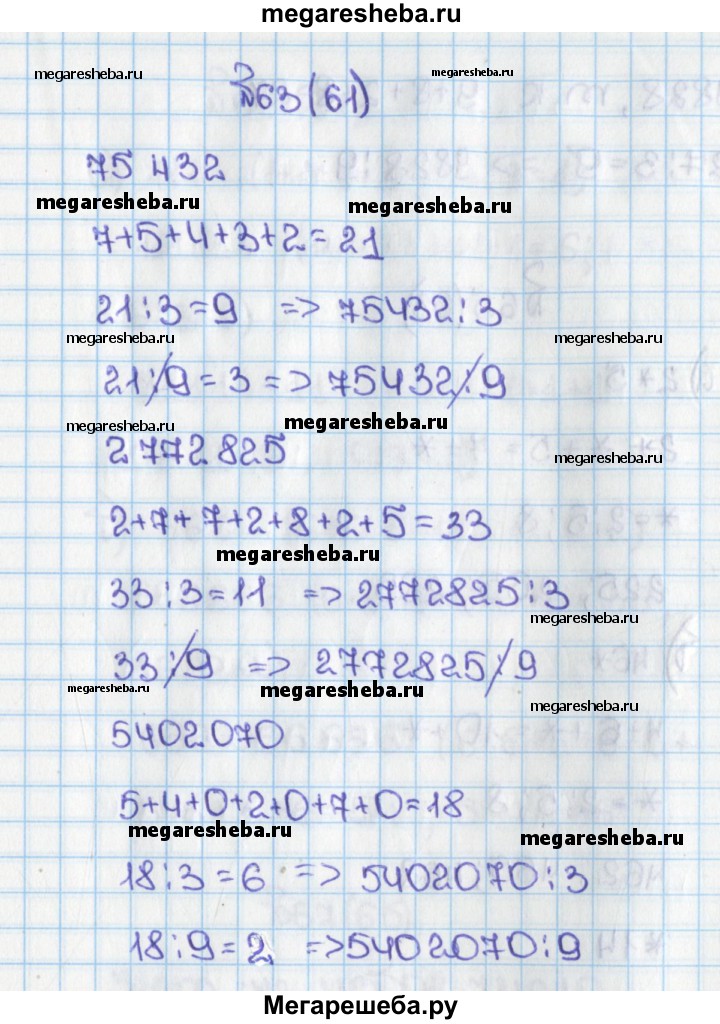 megaresheba.ru
megaresheba.ru megaresheba.ru
№63(61)
75 432
megaresheba.ru megaresheba.ru
7+5+4+3+2=21
21:3=9 => 75432:3
megaresheba.ru megaresheba.ru
21⋮̸9=3 => 75432⋮̸9
megaresheba.ru megaresheba.ru
2 772 825
megaresheba.ru
2+7+7+2+8+2+5=33
megaresheba.ru
33:3=11 => 2772825:3
megaresheba.ru
33⋮̸9 => 2772825⋮̸9
megaresheba.ru megaresheba.ru
megaresheba.ru
5402070
5+4+0+2+0+7+0=18
megaresheba.ru megaresheba.ru
18:3=6 => 5402070:3
18:9=2 => 5402070:9
Мегарешеба.ру